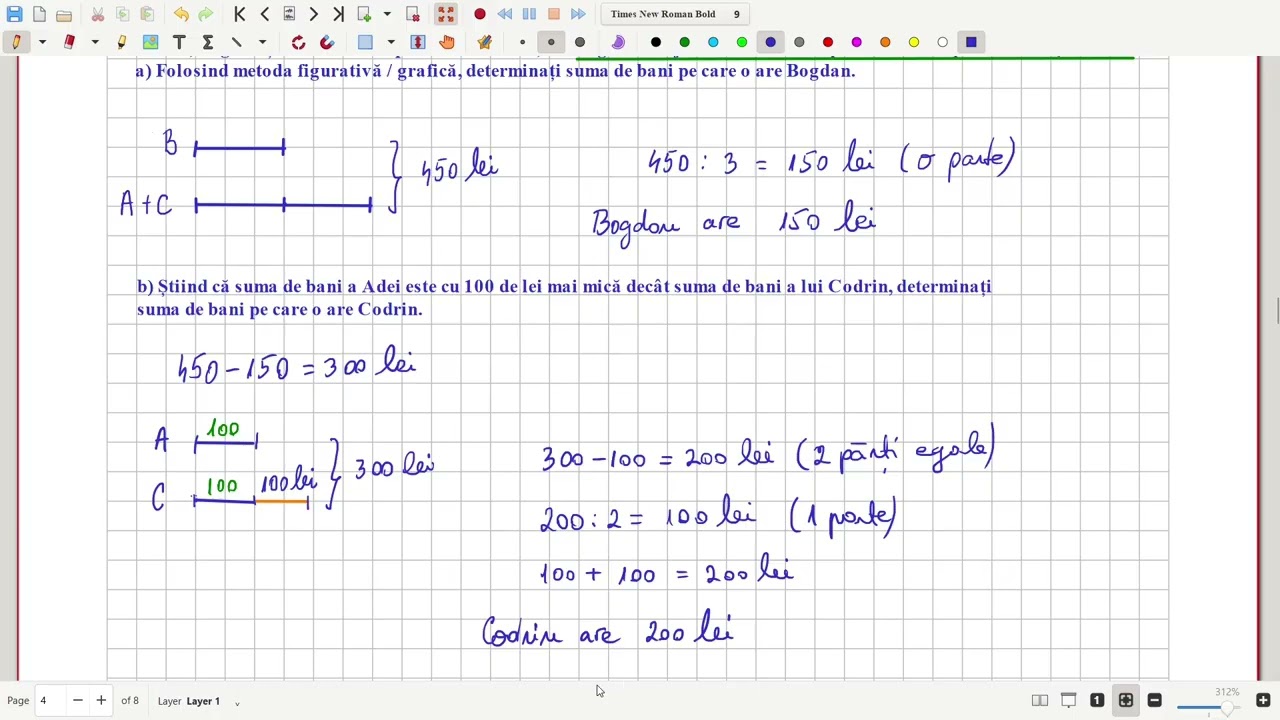 Times New Roman Bold 9
a) Folosind metoda figurativă / grafică, determinați suma de bani pe care o are Bogdan.
B
A+C
450 lei
450 : 3 = 150 lei (o parte)
Bogdan are 150 lei
b) Știind că suma de bani a Adei este cu 100 de lei mai mică decât suma de bani a lui Codrin, determinați
suma de bani pe care o are Codrin.
450 - 150 = 300 lei
A 100
C 100 100 lei
300 lei
300 - 100 = 200 lei (2 părți egale)
200 : 2 = 100 lei (1 parte)
100 + 100 = 200 lei
Codrin are 200 lei
Page 4 of 8 Layer Layer 1
1
312%